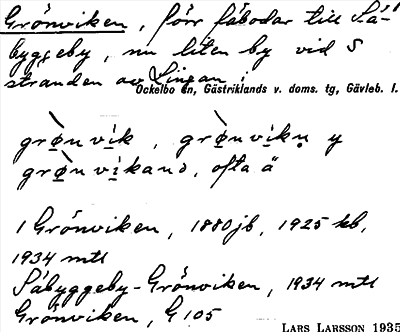 Grönviken, förr fäbodar till Så-
byggeby, nu liten by vid S
stranden av Lingan i
Ockelbo sn, Gästriklands v. doms. tg, Gävleb. l.
grø̀nvik, grø̀nvikn̥ y
grø̀nvikanɔ, ofta ä
1 Grönviken, 1880 jb, 1925 kb,
1934 mtl
Såbyggeby-Grönviken, 1934 mtl
Grönviken, G 105
LARS LARSSON 1935